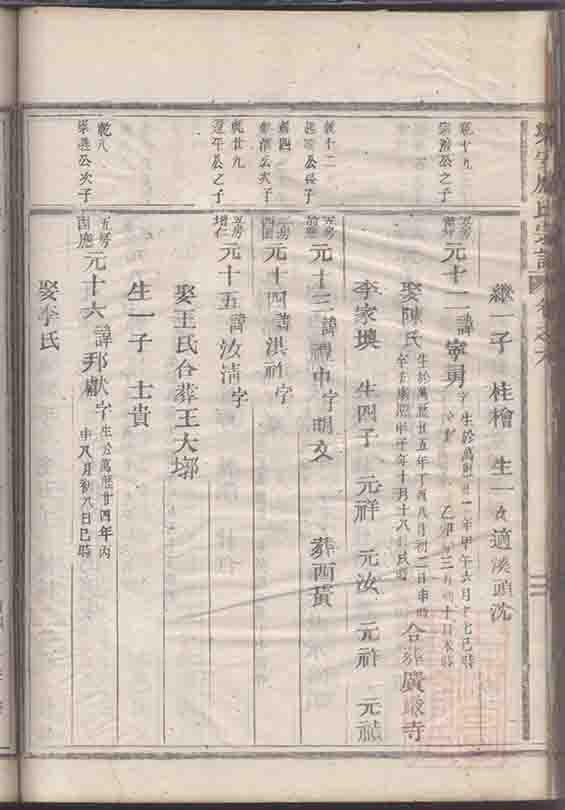 氏宗譜 卷之六
繼一子 桂檜 生一女適溪頭沈
乾十九
宗濬公之子
五房
元十二諱寧勇字 生於萬曆廿一年甲午六月十七巳時
乙卯年三月初十日未時
娶陳氏 生於萬曆廿五年丁酉八月初二日申時
康熙甲子年十月十八日戌時 合葬廣嚴寺
李家墺 生四子 元祥 元汝 元祚 元禎
乾十二
公長子
五房
元十三諱禮中字明文 葬西黃
公次子
房
元十四諱洪祉字
乾廿九
遵平公之子
五房
增仁
元十五諱汝清字
娶王氏合葬王大墺
生一子 士貴
乾八
宗燕公次子
五房
園應
元十六諱邦獻字 生於萬曆廿四年丙
申八月初八日巳時
娶李氏